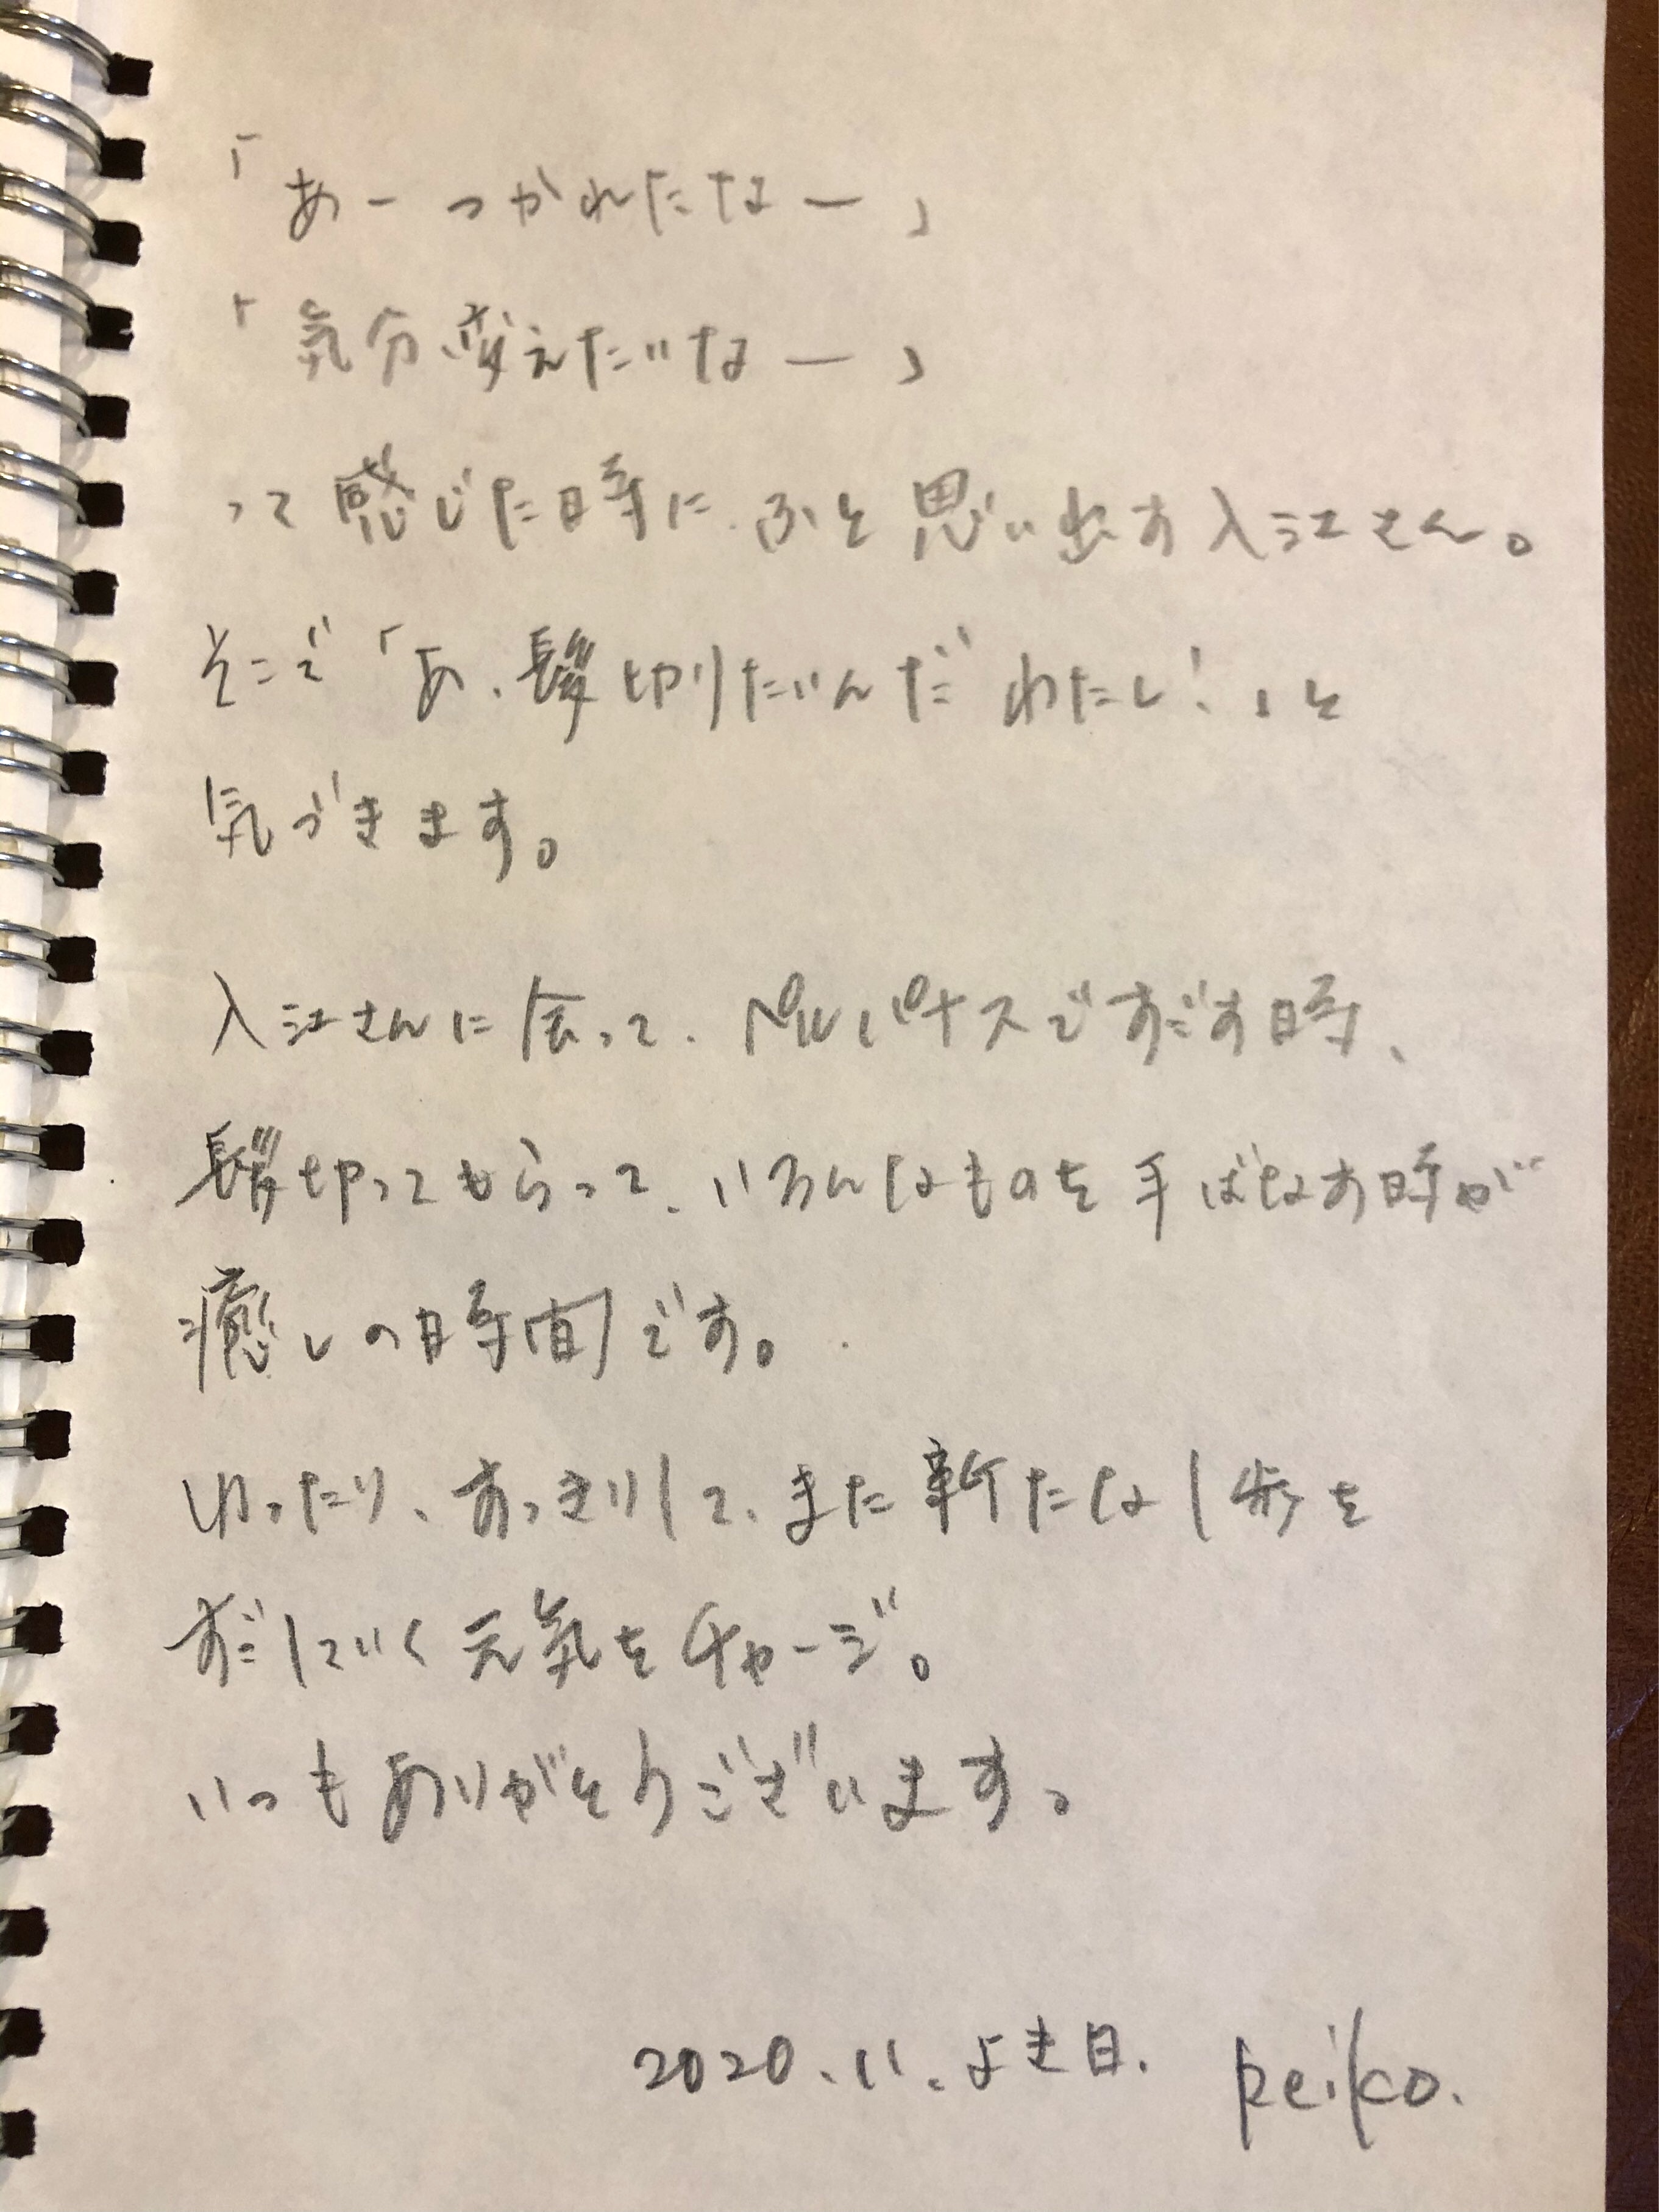 「あー つかれたなー」
「気分変えたいなー」
って感じた時に ふと思い出す入江さん。
そこで「あ、髪切りたいんだ わたし!」と
気づきます。
入江さんに会って、ペルパナスですごす時、
髪切ってもらって、いろんなものを手ばなす時が
癒しの時間です。
ゆったり、すっきりして、また新たな1歩を
だしていく元気をチャージ。
いつもありがとうございます。
2020.11.よき日. keiko.